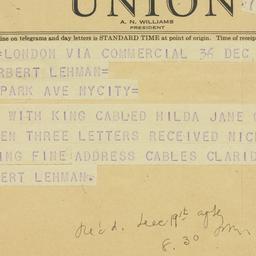 UNION
A. N. WILLIAMS
PRESIDENT
line on telegrams and day letters is STANDARD TIME at point of origin. Time of receipt
=LONDON VIA COMMERCIAL 36 DEC
RBERT LEHMAN=
PARK AVE NYCITY=
WITH KING CABLED HILDA JANE
EN THREE LETTERS RECEIVED NICE
ING FINE ADDRESS CABLES CLARID
ERT LEHMAN.
Rec'd. Dec 19th
8.30